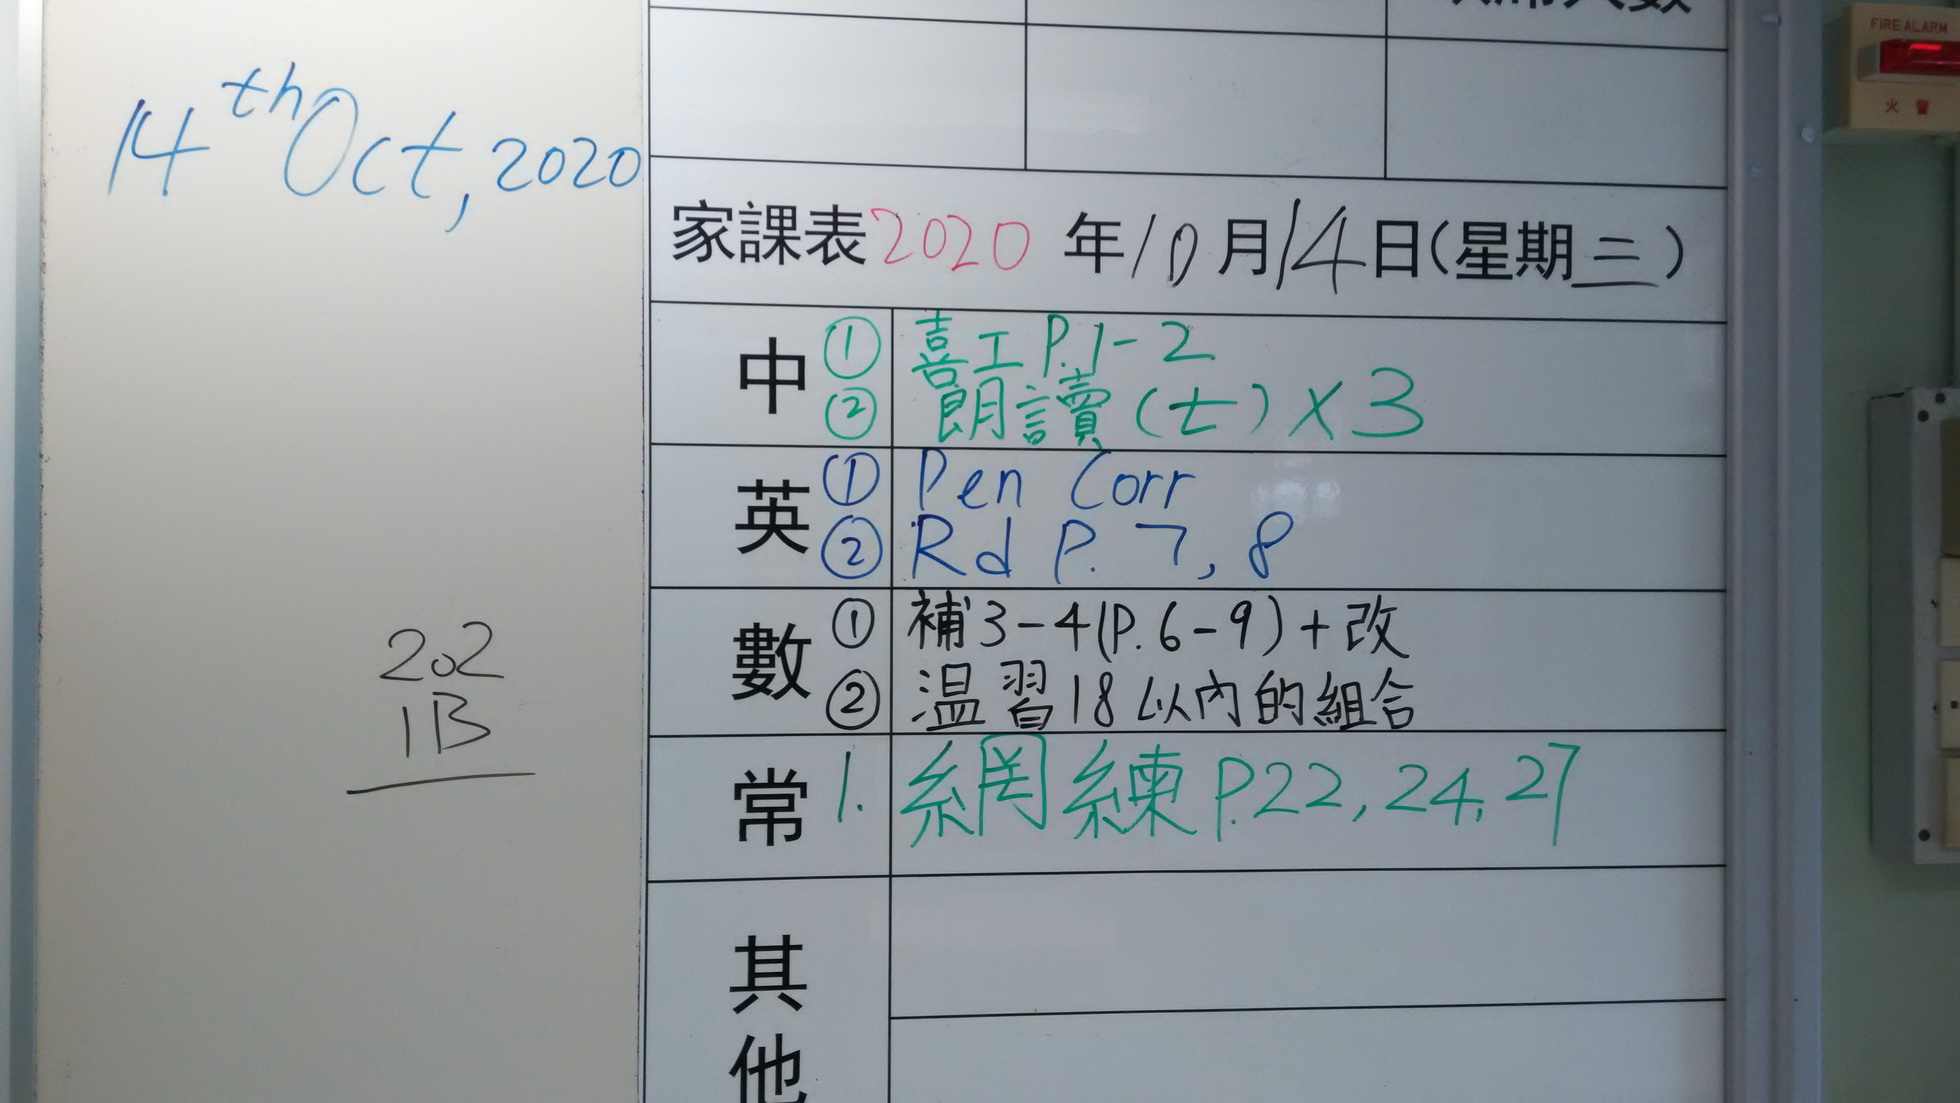 14th Oct, 2020
202
1B
家課表2020年10月14日(星期三)
中 ① 喜工P.1-2
② 朗讀(七)×3
英 ① Pen Corr
② Rd P. 7, 8
數 ① 補3-4(P.6-9)+改
② 温習18以內的組合
常 1. 網練P.22, 24, 27
其他
FIRE ALARM
火警